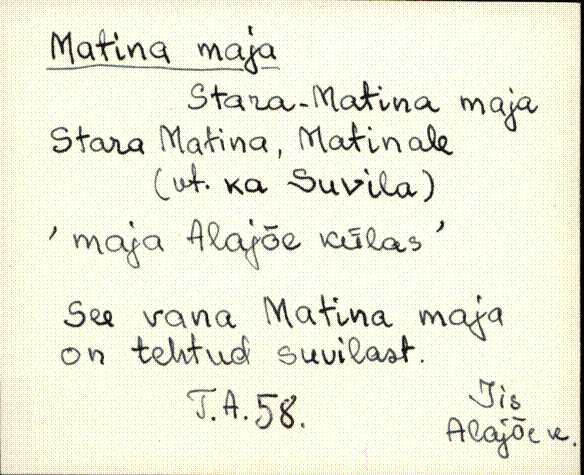 Matina maja
Stara-Matina maja
Stara Matina, Matinale
(vt. ka Suvila)
'maja Alajõe külas'
See vana Matina maja
on tehtud suvilast.
T.A.58.
Iis
Alajõe k.